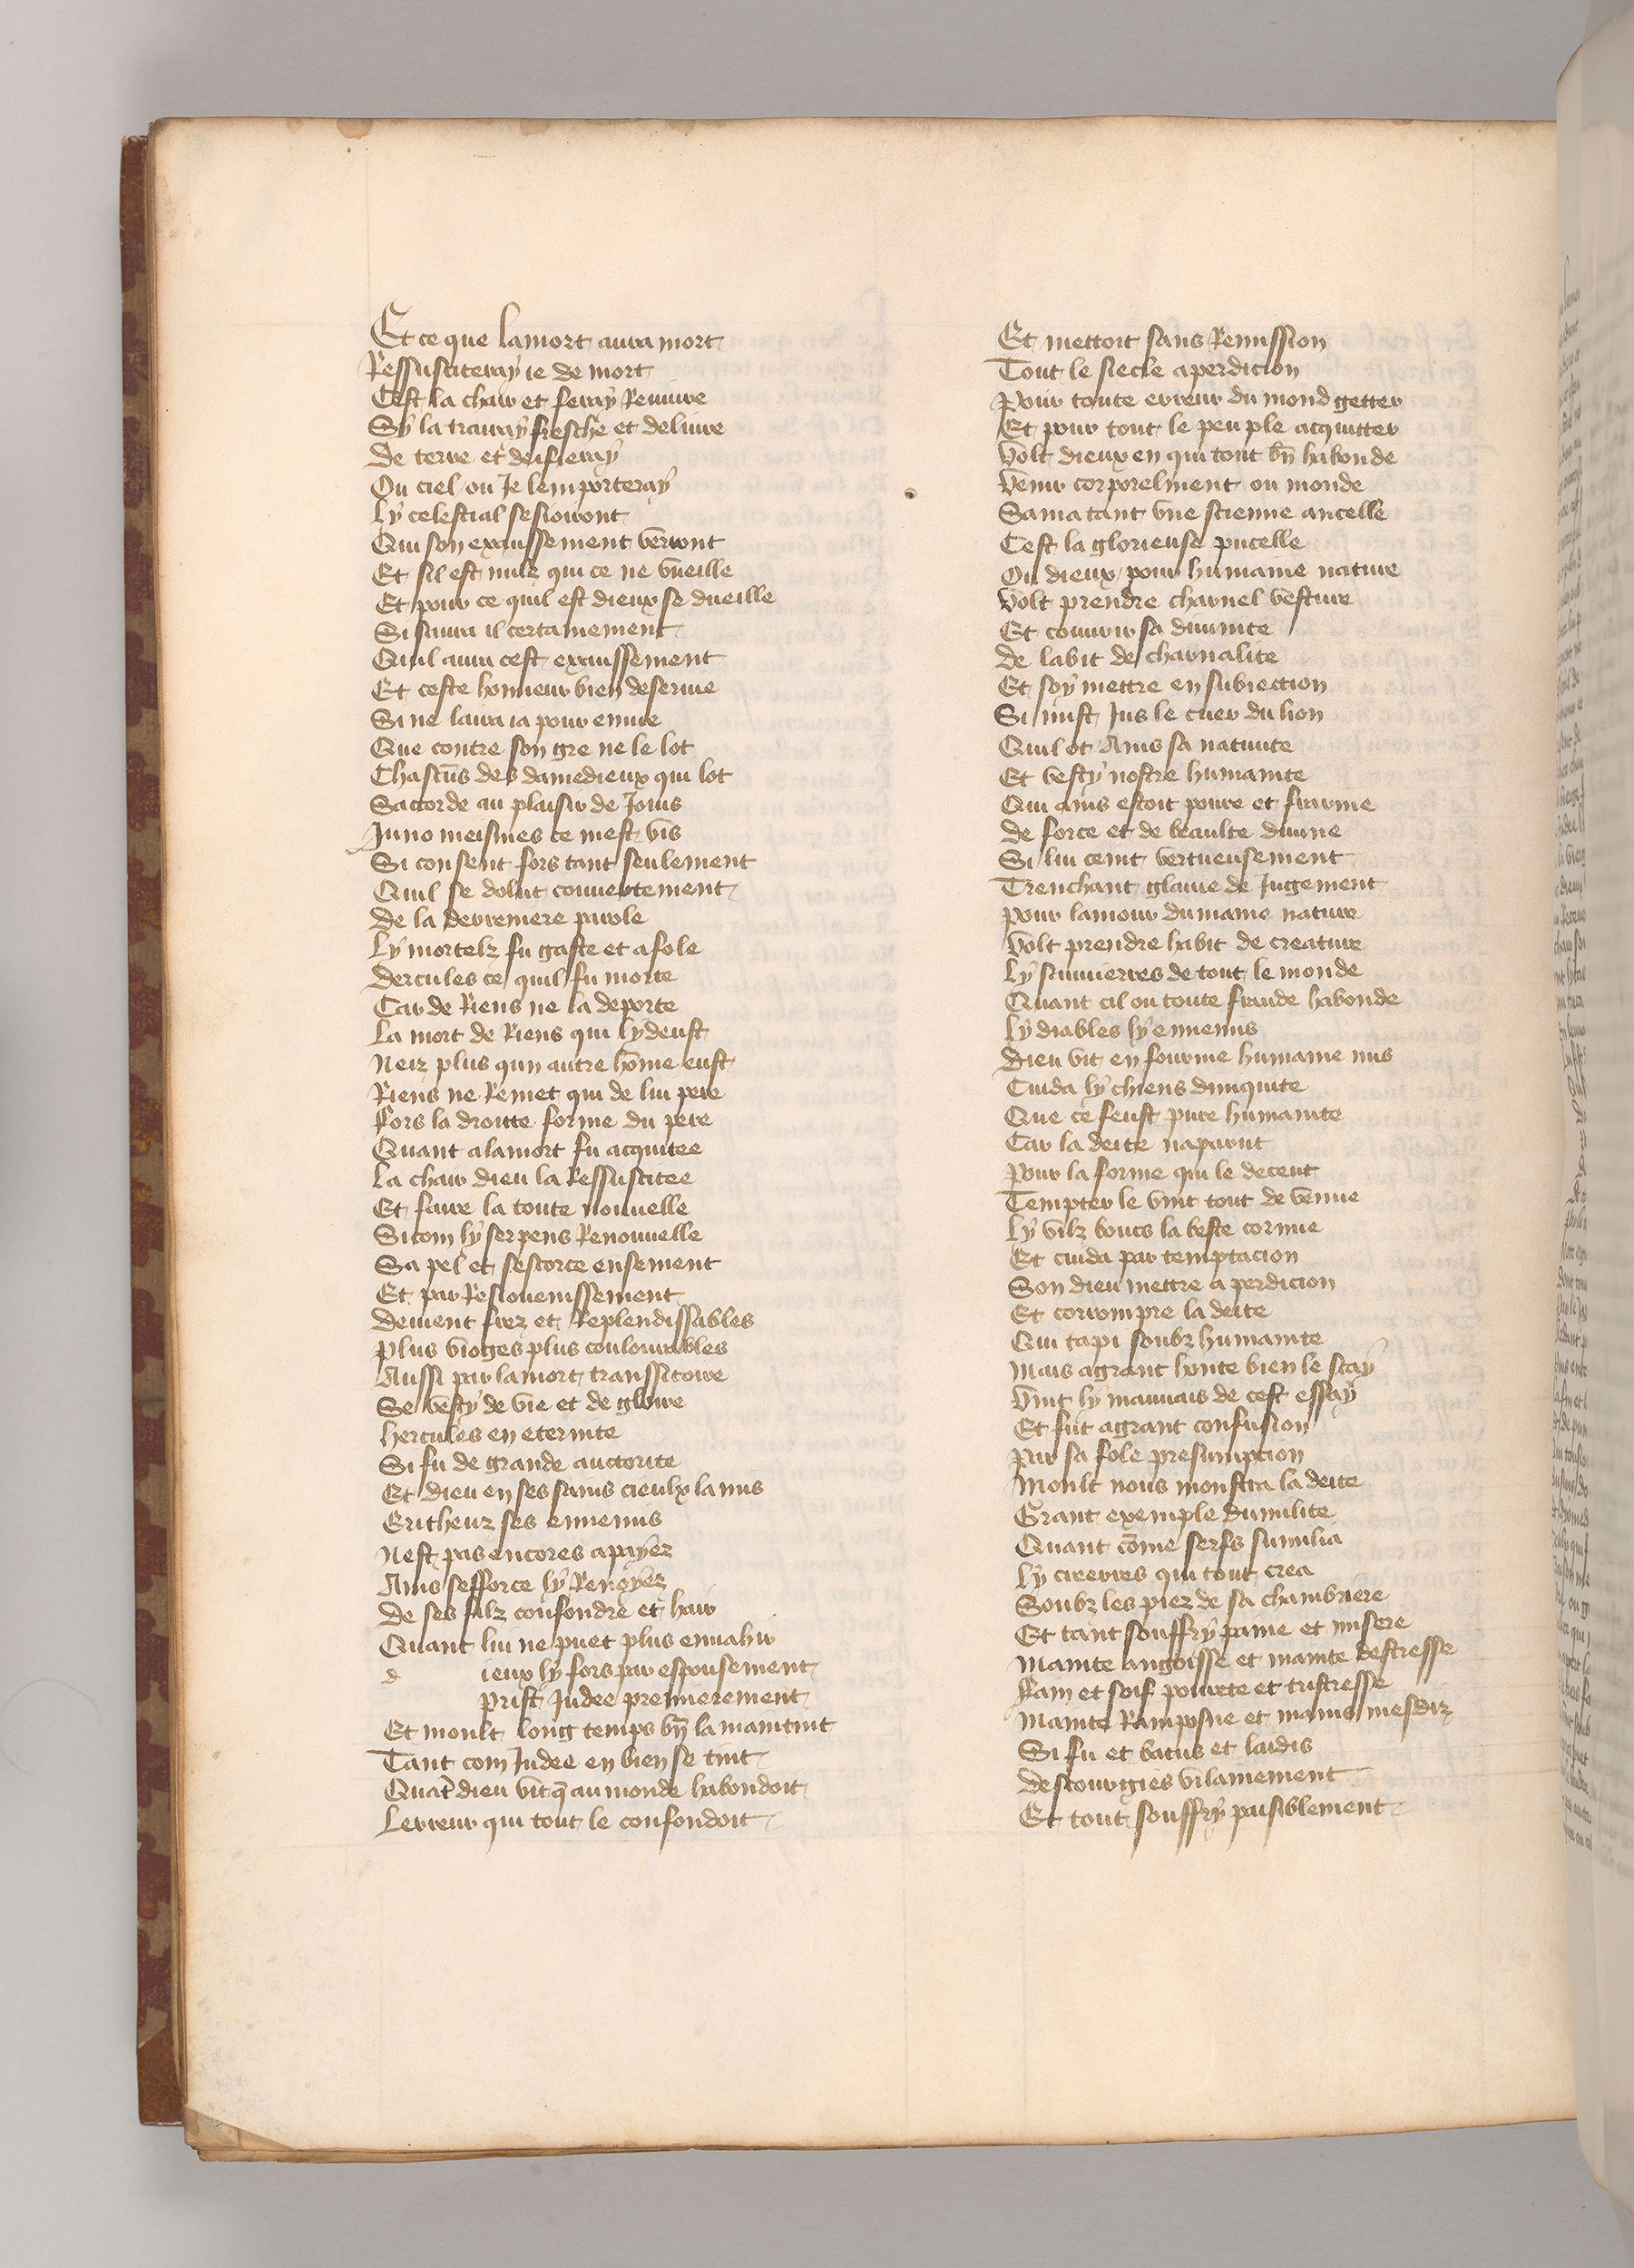 Et ce que lamort aura mort
Ressusciteray ie de mort
Cest la chair et feray Reuiure
Sy la trairay fresche et deliure
De terre et deifieray
Ou ciel ou Je lemporteray
Ly celestial sesioiront
Qui son exaussement verront
Et sil est nulz qui ce ne vueille
Et pour ce quil est dieux se dueille
Si saura il certainement
Quil aura cest exaussement
Et ceste honneur bien deseruie
Si ne laira ia pour enuie
Que contre son gre ne le lot
Chascuns des damedieux qui lot
Sacorde au plaisir de Jouis
Juno meismes ce mest vis
Si consent fors tant seulement
Quil se dolut couuertement
De la derreniere parole
Ly mortelz fu gaste et afole
Dercules ce quil fu morte
Car de Riens ne la deporte
La mort de Riens qui ly deust
Neiz plus qun autre hōme eust
Riens ne Remet qui de lui pere
Fors la droitte forme du pere
Quant alamort fu acquitee
La chair dieu la Ressuscitee
Et faire la toute nouuelle
Sicom ly serpens Renouuelle
Sa pel et sescorce ensement
Et par Resiouenissement
Deuient frez et Replendissables
Plus vioges plus coulourables
Aussi par lamort transsitoire
Se vesty de vie et de gloire
Hercules en eternite
Si fu de grande auctorite
Et dieu en ses sains cieulx la mis
Eritheuz ses ennemis
Nest pas encores apayez
Ains sefforce ly Renoyez
De ses filz confondre et hair
Quant lui ne puet plus enuahir
d ieux ly fors par espousement
Prist Judee premierement
Et moult long temps bn̄ la maintint
Tant com Judee en bien se tint
Quāt dieu vit q̄ au monde habondoit
Lerreur qui tout le confondoit
Et mettoit sans Remission
Tout le siecle aperdicion
Pour toute erreur du mond getter
Et pour tout le peuple acquitter
Volt dieux en qui tout bn̄ habonde
Venir corporelment ou monde
Sama tant vne scienne ancelle
Cest la glorieuse pucelle
Ou dieux pour humaine nature
Volt prendre charnel vesture
Et couurir sa diuinite
De labit de charnalite
Et soy mettre en subiection
Si mist Jus le cuer du lion
Quil ot Ains sa natiuite
Et vesty nostre humanite
Qui ains estoit poure et frarine
De force et de beaulte diuine
Si lui ceint vertueusement
Trenchant glaiue de Jugement
Pour lamour dumaine nature
Volt prendre habit de creature
Ly sauuierres de tout le monde
Quant cil ou toute fraude habonde
Ly diables ly ennemis
Dieu vit en fourme humaine mis
Cuida ly chiens diniquite
Que ce feust pure humanite
Car la deite naparut
Pour la forme qui le deceut
Tempter le vint tout de venue
Ly vilz boucs la beste cornue
Et cuida par temptacion
Son dieu mettre a perdicion
Et corrompre la deite
Qui tapi soubz humanite
Mais agrant honte bien le scay
Vint ly mauuais de cest essay
Et fut agrant confusion
Par sa fole presumption
Moult nous monstra la deite
Grant exemple dumilite
Quant cōme serfs sumilia
Ly creerres qui tout crea
Soubz les piez de sa chambriere
Et tant souffry paine et misere
Mainte angoisse et mainte destresse
Fain et soif pourete et tristresse
Mainte Ramposne et mains mesdiz
Si fu et batus et laidis
Descourgies vilainement
Et tout souffry paisiblement